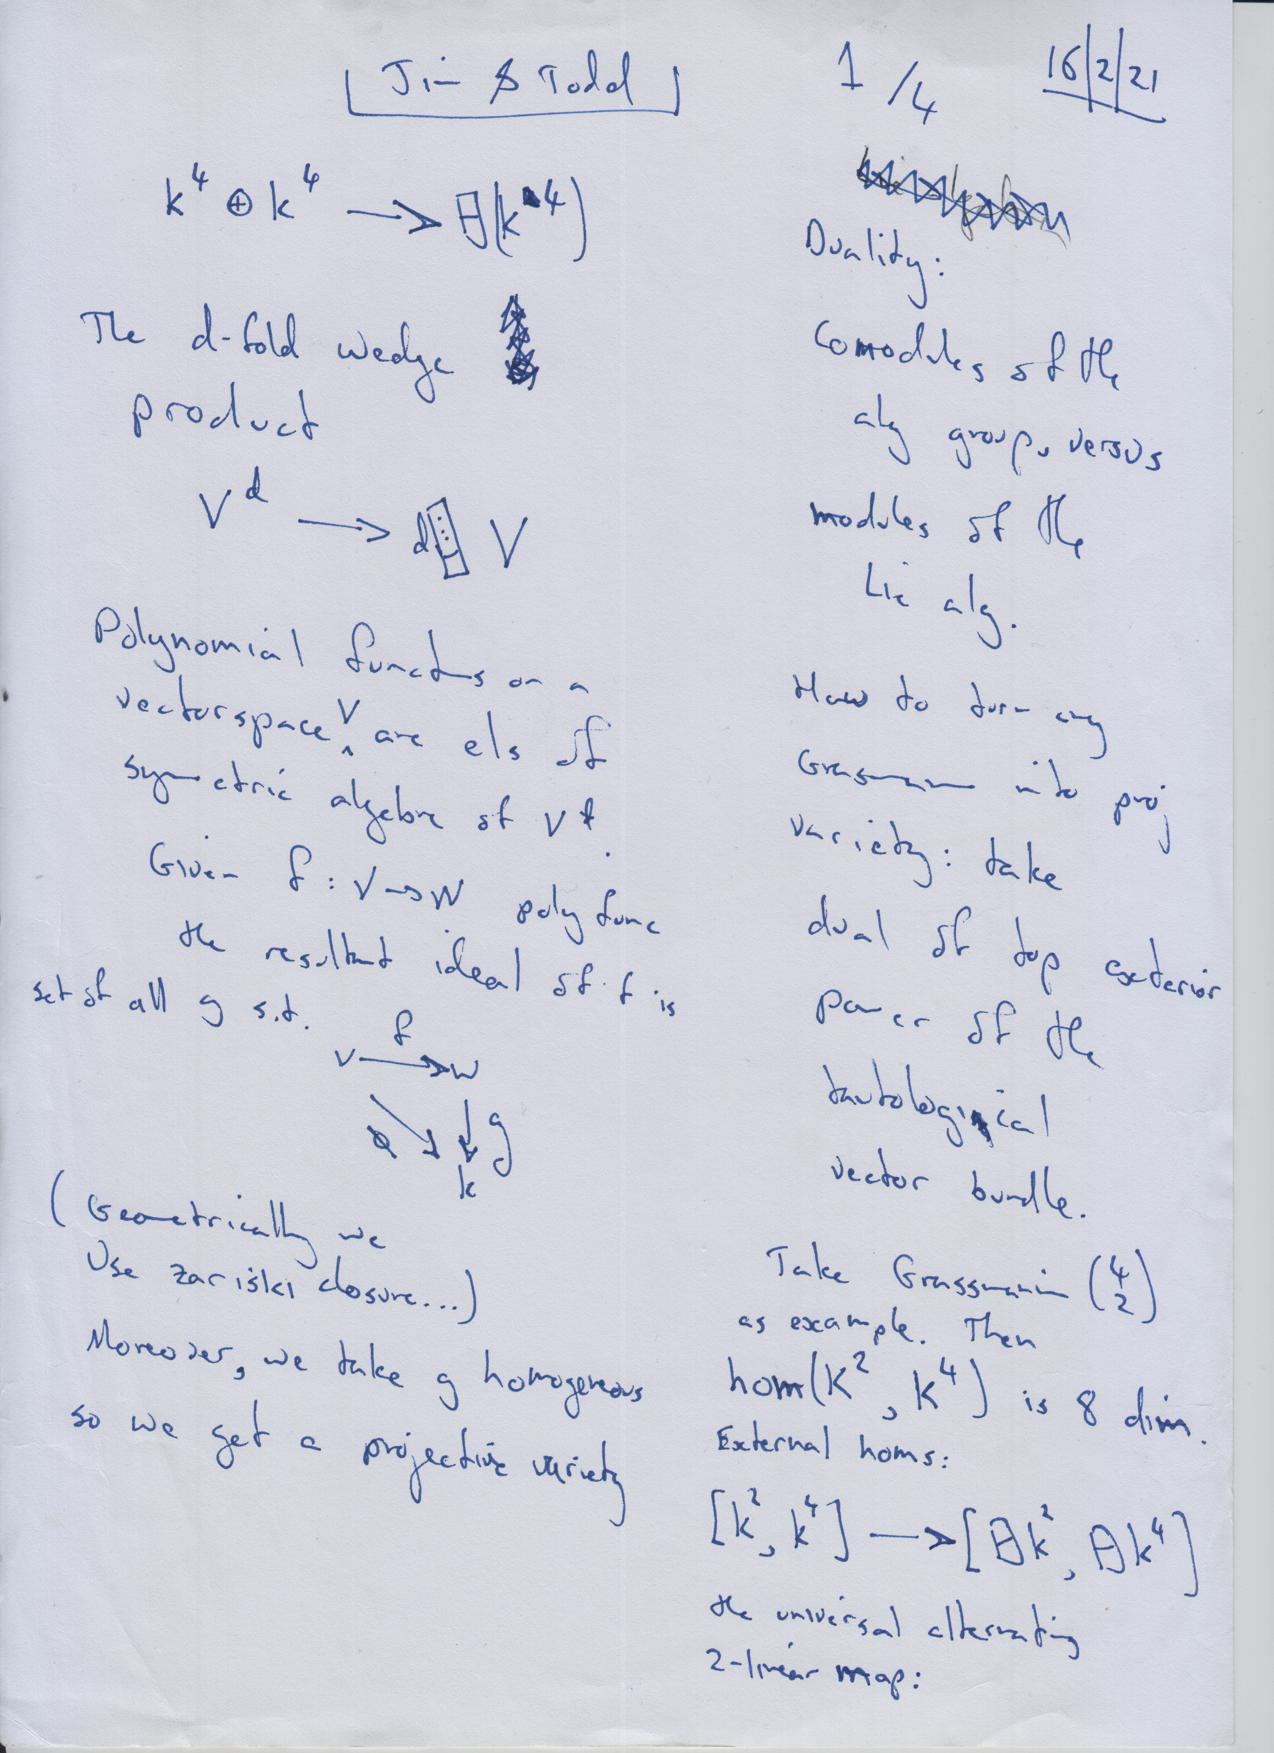 Jim & Todd
1/4
16/2/21
k⁴ ⊕ k⁴ → 日(k⁴)
The d-fold wedge
product
V^d → d[⋮] V
Polynomial functns on a
vectorspace V are els of
symetric algebra of V*.
Given f : V → W poly func
the resultant ideal of f is
set of all g s.t.
V f → W
0 ↘ ↓ g
k
(Geometrically we
Use Zariski closure...)
Moreover, we take g homogeneous
so we get a projective variety
Duality:
Comodules of the
alg group, versus
modules of the
Lie alg.
How to turn any
Grassmann into proj
variety: take
dual of top exterior
power of the
tautological
vector bundle.
Take Grassmannian (4 2)
as example. Then
hom(k², k⁴) is 8 dim.
External homs:
[k², k⁴] → [日k², 日k⁴]
the universal alternating
2-linear map: